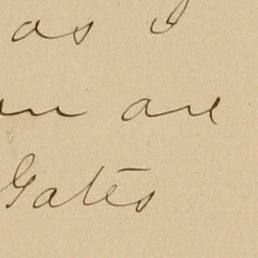 as
are
Gates